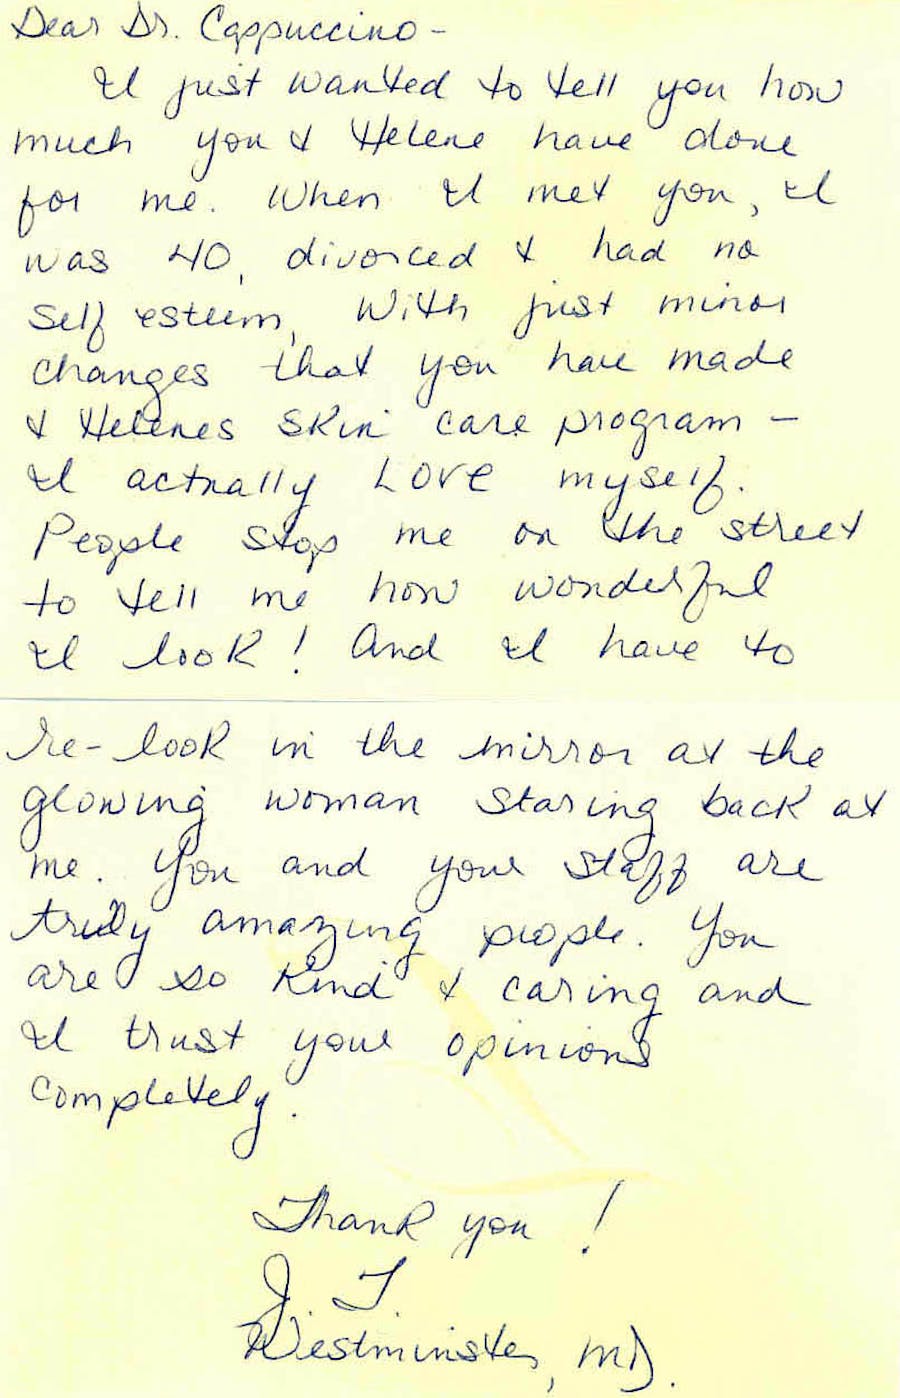 Dear Dr. Cappuccino -
I just wanted to tell you how
much you & Helene have done
for me. When I met you, I
was 40, divorced & had no
self esteem, With just minor
changes that you have made
& Helenes skin care program -
I actually LOVE myself.
People stop me on the street
to tell me how wonderful
I look! And I have to
re-look in the mirror at the
glowing woman staring back at
me. You and your staff are
truly amazing people. You
are so kind & caring and
I trust your opinions
completely.
Thank you!
J. T.
Westminster, MD.